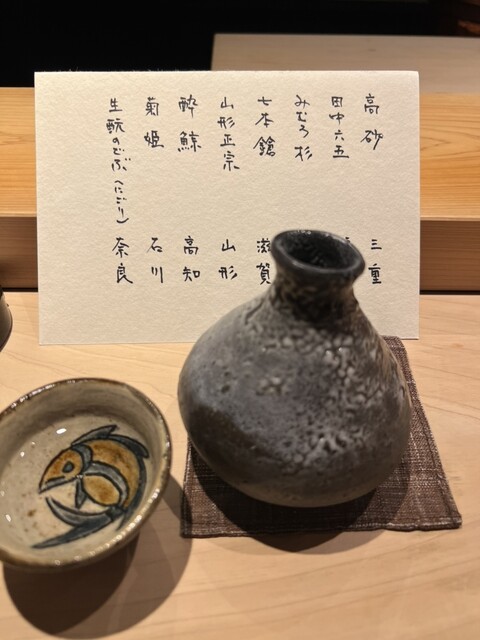 高砂 三重
田中六五
みむろ杉
七本鎗 滋賀
山形正宗 山形
酔鯨 高知
菊姫 石川
生酛のどぶ(にごり) 奈良